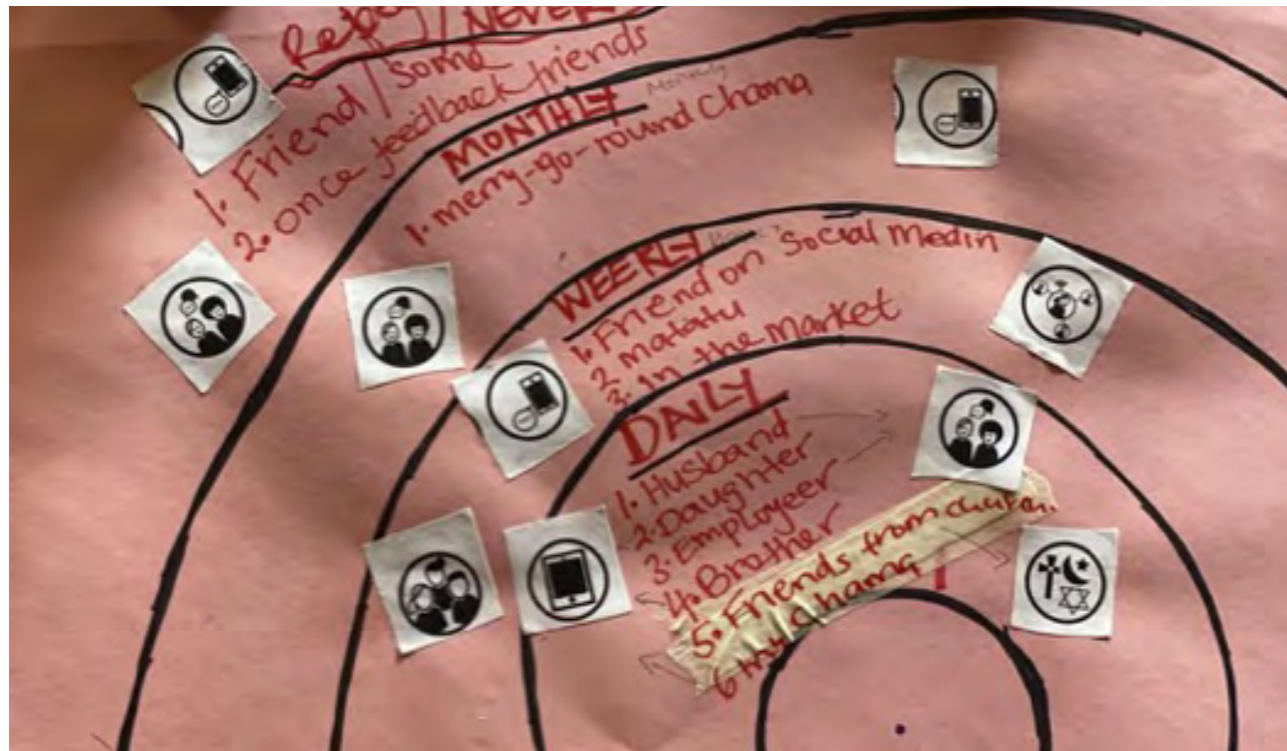 NEVER
Some
1. Friend
2. Once feedback friends
MONTHLY Monthly
1. merry-go-round Chama
WEEKLY
1. Friend on Social Media
2 matatu
3. in the market
DAILY
1. Husband
2. Daughter
3. Employeer
4. Brother
5. Friends from church.
6 my chama